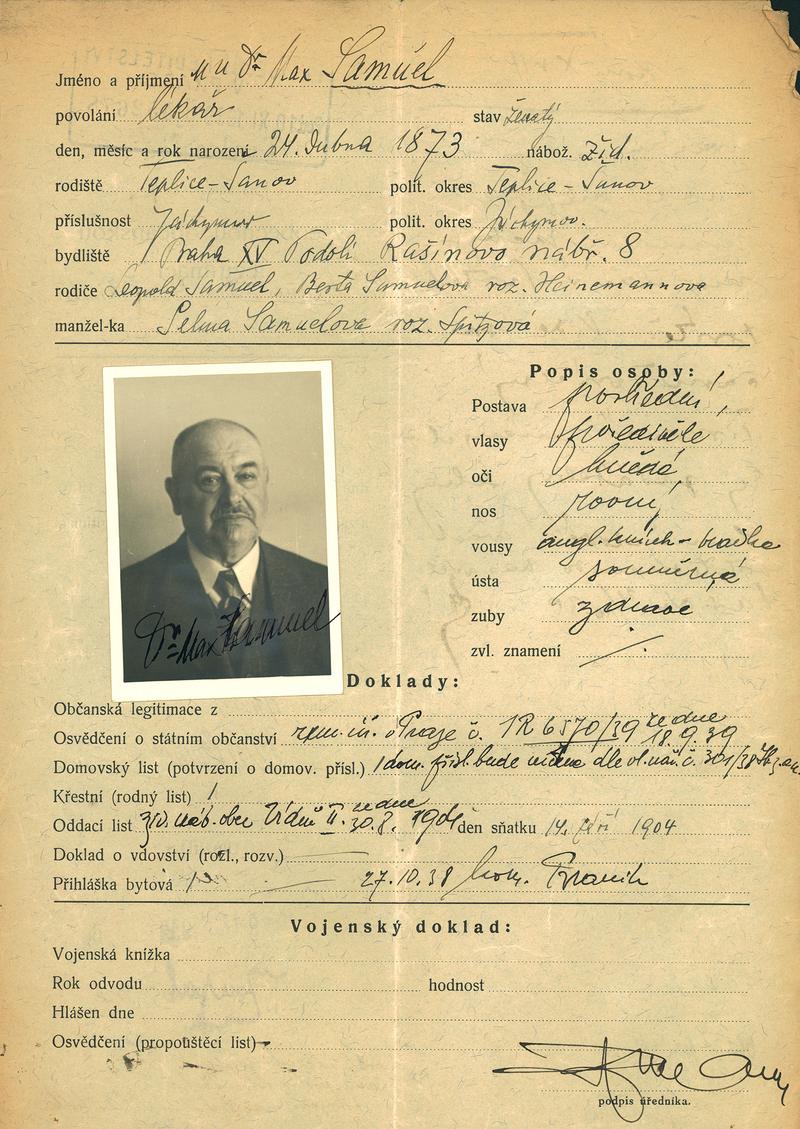 Jméno a příjmení MU Dr Max Samuel
povolání lékař stav ženatý
den, měsíc a rok narození 24. Dubna 1873 nábož. žid.
rodiště Teplice-Šanov polit. okres Teplice-Šanov
příslušnost Jáchymov polit. okres Jáchymov.
bydliště Praha XV Podolí Rašínovo nábř. 8
rodiče Leopold Samuel, Berta Samuelova roz. Heinemannova
manžel-ka Selma Samuelova roz. Spitzová
Popis osoby:
Postava prostřední,
vlasy prošedivělé
oči hnědé,
nos rovný,
vousy angl. knírek - bradka
ústa souměrná
zuby zdravé
zvl. znamení
Dr Max Samuel
Doklady:
Občanská legitimace z
Osvědčení o státním občanství zem. úř. v Praze č. 1R 6570/39 ze dne 18.9.39
Domovský list (potvrzení o domov. přísl.) dom. přísl. bude dle vl. nař. č. 301/38
Křestní (rodný list)
Oddací list žid. náb. obec Vídeň II. ze dne 30.8. den sňatku 14. září 1904
Doklad o vdovství (rozl., rozv.)
Přihláška bytová 27.10.38 kom. Braník
Vojenský doklad:
Vojenská knížka
Rok odvodu hodnost
Hlášen dne
Osvědčení (propouštěcí list)
podpis úředníka.